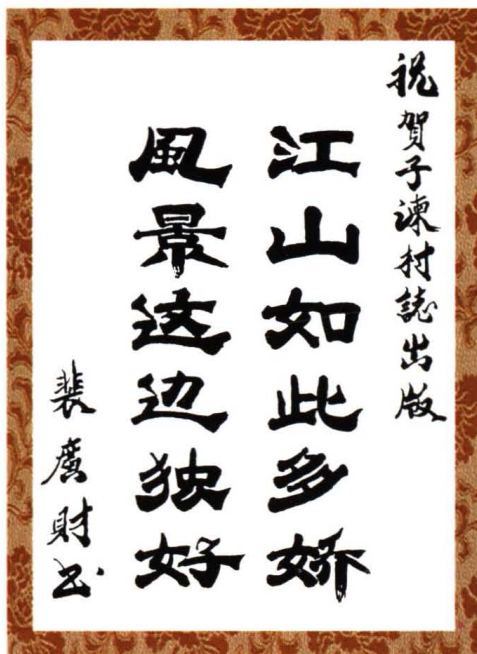 祝賀子谏村誌出版
江山如此多娇
風景这边独好
裴廣財书